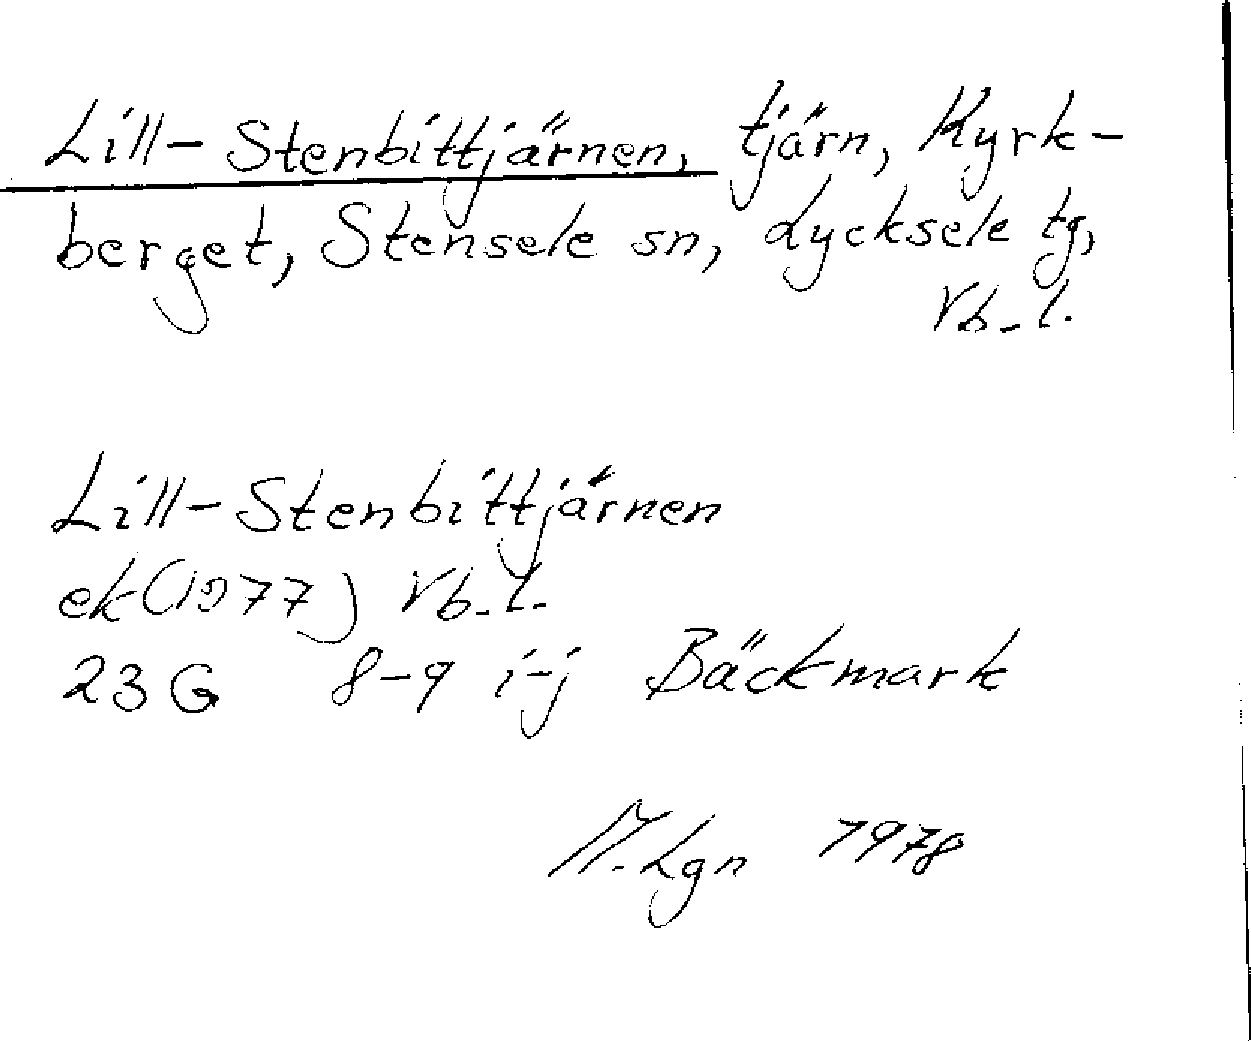 Lill-Stenbittjärnen, tjärn, Kyrk-
berget, Stensele sn, Lycksele tg,
Vb. l.
Lill-Stenbittjärnen
ek (1977) Vb. l.
23 G 8-9 i-j Bäckmark
M. Lgn 1978